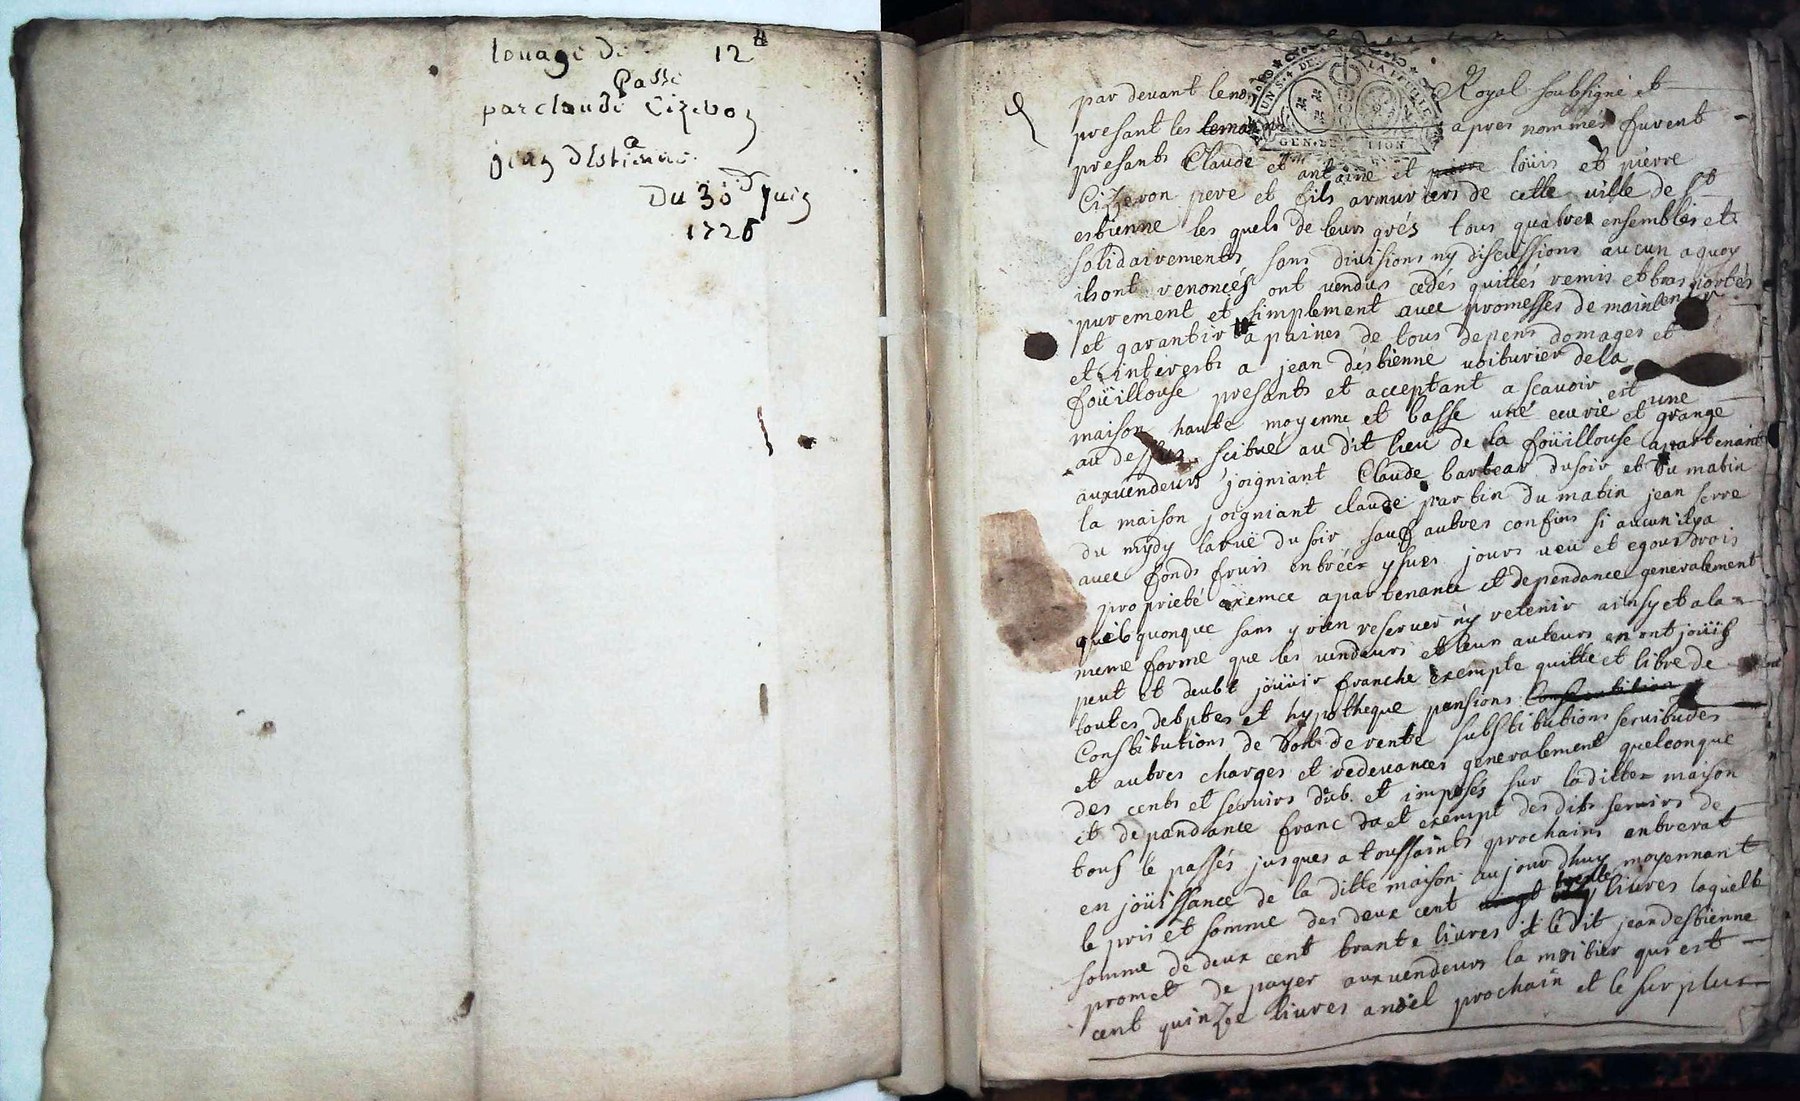 louage de 12 ₶
Passé
par claude Cizeron
a
jean destienne
Du 30 Juin
1726
par devant le no Royal soubsigné et
presant les apres nommés furent
presants Claude et antoine et loüis et pierre
Cizeron pere et fils armuriers de cette ville de st
estienne les quels de leurs grés tous quatres ensembles et
solidairements sans divisions ny discussions aucun a quoy
ils ont renoncés ont vendus cedés quittés remis et trasportés
purement et simplement avec promesses de maintenir
et garantir a paines de tous depens domages et
et interests a jean destienne voiturier de la
foüillouse presants et acceptant a scavoir est une
maison haute moyenne et basse une ecurie et grange
au dessus scitué au dit lieu de la foüillouse apartenant
aux vendeurs joigniant Claude barteau du soir et du matin
la maison joigniant claude partin du matin jean serre
du mydy la ruë du soir sauf autres confins si aucun il y a
avec fonds fruis entréés ysues jours veü et egous drois
proprieté exemce apartenance et dependance generalement
quelquonque sans y rien reserver ny retenir ainsy et a la
meme forme que les vendeurs et leurs auteurs en ont joüis
peut et deubt joüir franche exempte quitte et libre de
toutes debptes et hypotheque pensions
Constitutions de dot de rente substitutions servitudes
et autres charges et redevances generalement quelconque
des cents et servirs dub et imposés sur laditte maison
et depandance franc et exempt des dits servirs de
tous le passés jusques a toussaints prochains entrerat
en joüissance de la ditte maison aujourdhuy moyennant
le pris et somme des deux cent trente livres laquelle
somme de deux cent trante livres le dit jean destienne
promet de payer aux vendeurs la moitier qui est
cent quinze livres a noël prochain et le surplus
GEN. TION